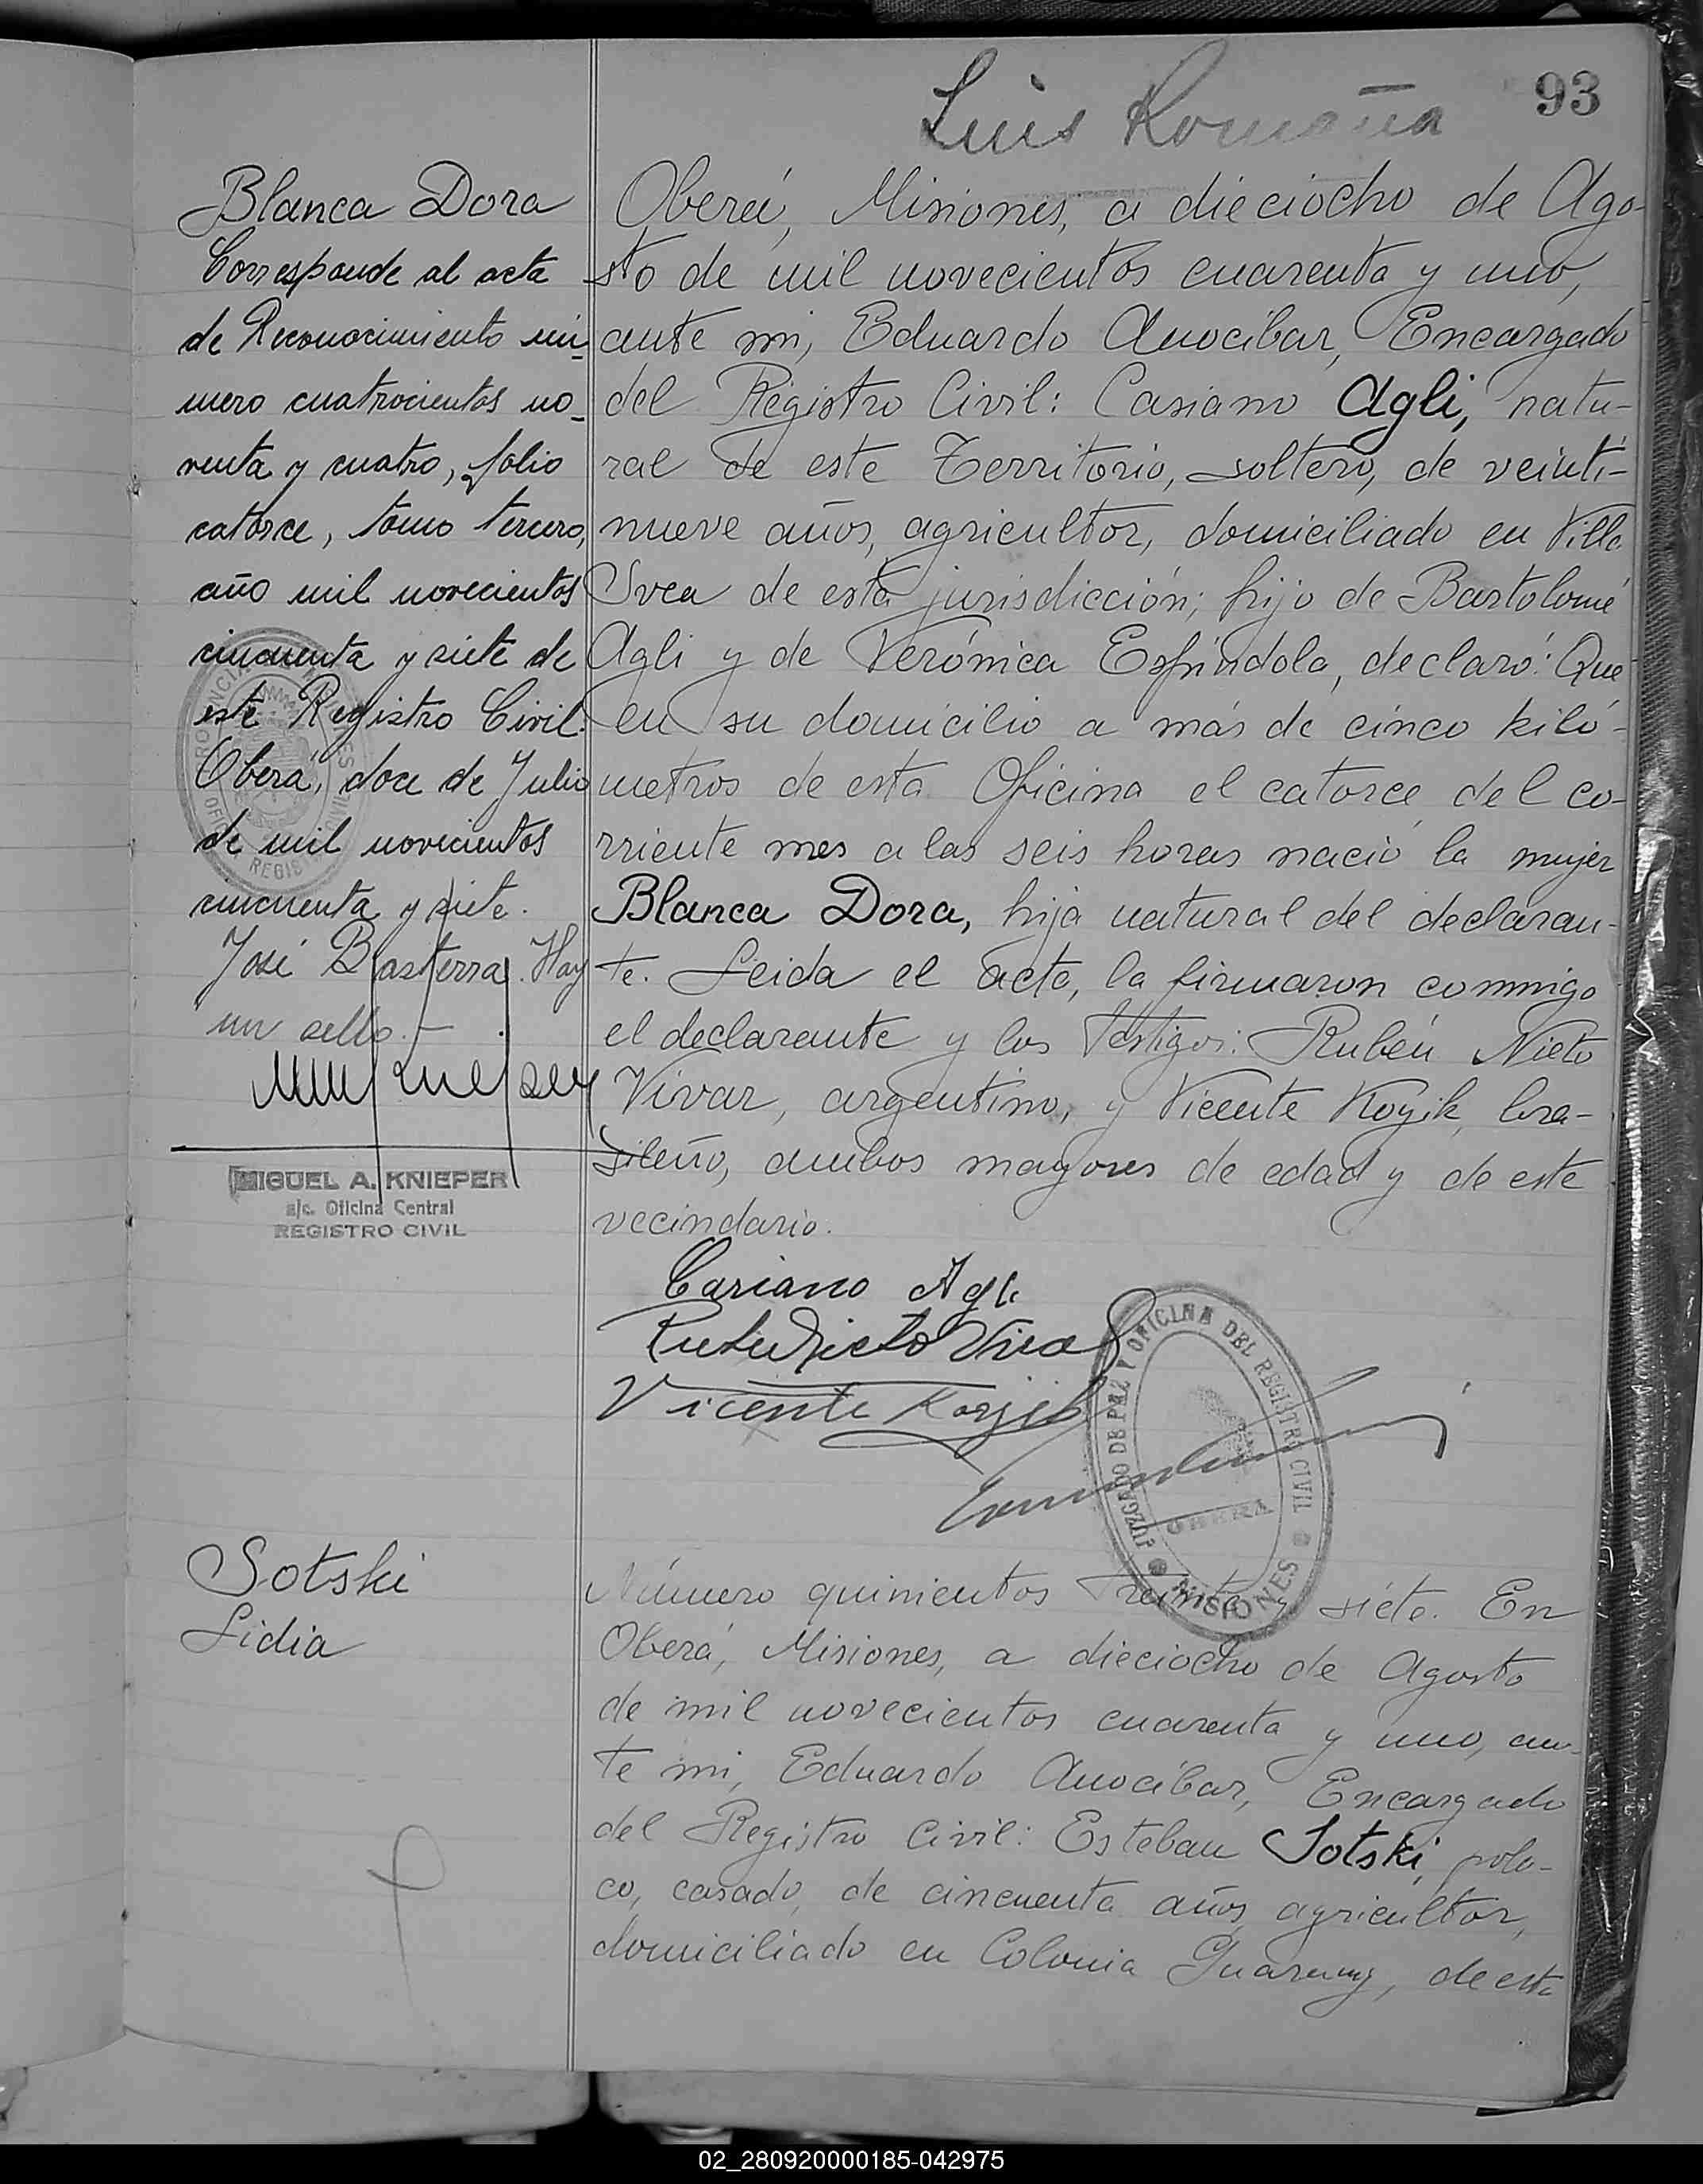 93
Luis Romaña
Blanca Dora
Corresponde al acta
de Reconocimiento nú-
mero cuatrocientos no-
venta y cuatro, folio
catorce, tomo tercero,
año mil novecientos
cincuenta y siete de
este Registro Civil.
Oberá, doce de Julio
de mil novecientos
cincuenta y siete.
José Basterra. Hay
un sello.-
MIGUEL A. KNIEPER
a/c. Oficina Central
REGISTRO CIVIL
Oberá, Misiones, a dieciocho de Ago-
sto de mil novecientos cuarenta y uno,
ante mi, Eduardo Anocibar, Encargado
del Registro Civil: Casiano Agli, natu-
ral de este Territorio, soltero, de veinti-
nueve años, agricultor, domiciliado en Villa
Svea de esta jurisdicción; hijo de Bartolomé
Agli y de Verónica Espíndola, declaró: Que
en su domicilio a más de cinco kiló-
metros de esta Oficina el catorce del co-
rriente mes a las seis horas nació la mujer
Blanca Dora, hija natural del declaran-
te. Leida el acta, la firmaron conmigo
el declarante y los testigos: Rubén Nieto
Vivar, argentino, y Vicente Koyik, bra-
sileño, ambos mayores de edad y de este
vecindario.
Casiano Agli
Vicente
JUZGADO DE PAZ Y OFICINA DEL REGISTRO CIVIL
OBERA
MISIONES
Sotski
Lidia
Número quinientos treinta y siete. En
Oberá, Misiones, a dieciocho de Agosto
de mil novecientos cuarenta y uno, an-
te mi, Eduardo Anocibar, Encargado
del Registro Civil: Esteban Sotski, pola-
co, casado, de cincuenta años, agricultor,
domiciliado en Colonia Guarany, de esta
02_280920000185-042975